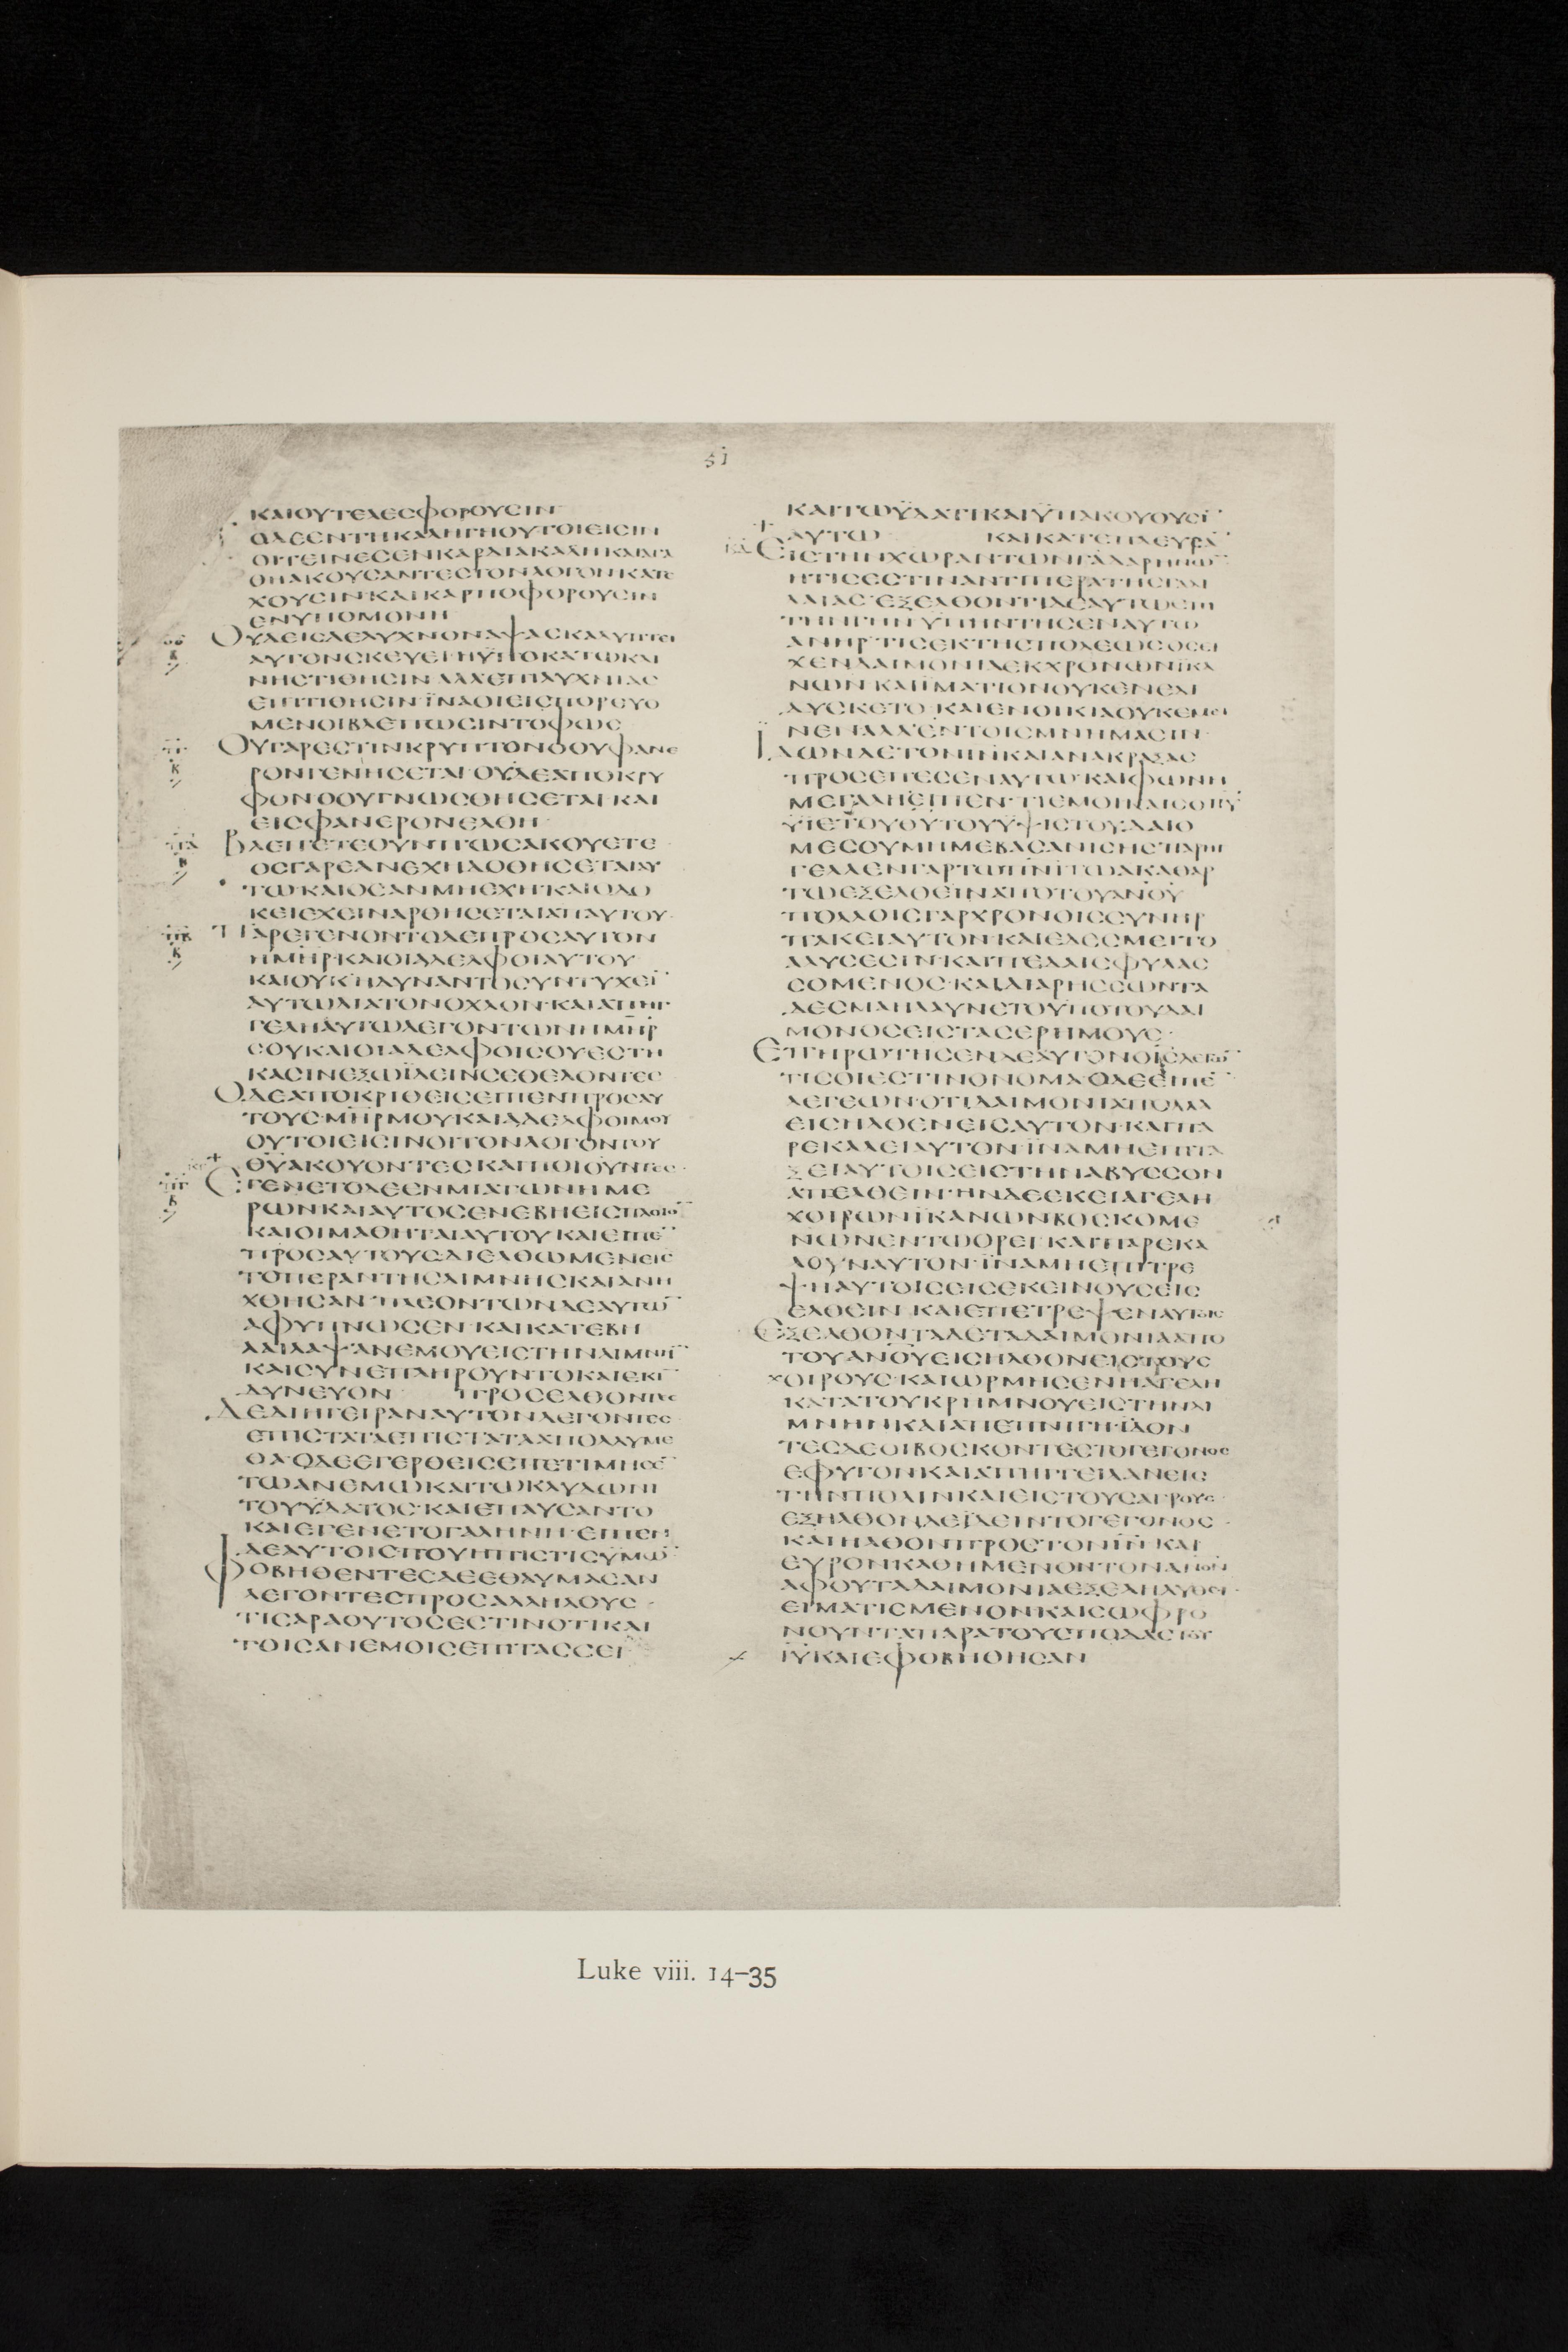 51
ΚΑΙΟΥΤΕΛΕϹΦΟΡΟΥϹΙΝ
ΟΔΕΕΝΤΗΚΑΛΗΓΗΟΥΤΟΙΕΙϹΙΝ
ΟΙΤΙΝΕϹΕΝΚΑΡΔΙΑΚΑΛΗΚΑΙΑΓΑ
ΘΗΑΚΟΥϹΑΝΤΕϹΤΟΝΛΟΓΟΝΚΑΤΕ
ΧΟΥϹΙΝΚΑΙΚΑΡΠΟΦΟΡΟΥϹΙΝ
ΕΝΥΠΟΜΟΝΗ
ΟΥΔΕΙϹΔΕΛΥΧΝΟΝΑΨΑϹΚΑΛΥΠΤΕΙ
ΑΥΤΟΝϹΚΕΥΕΙΗΫΠΟΚΑΤΩΚΛΙ
ΝΗϹΤΙΘΗϹΙΝΑΛΛΕΠΙΛΥΧΝΙΑϹ
ΕΠΙΤΙΘΗϹΙΝΪΝΑΟΙΕΙϹΠΟΡΕΥΟ
ΜΕΝΟΙΒΛΕΠΩϹΙΝΤΟΦΩϹ
ΟΥΓΑΡΕϹΤΙΝΚΡΥΠΤΟΝΟΟΥΦΑΝΕ
ΡΟΝΓΕΝΗϹΕΤΑΙ·ΟΥΔΕΑΠΟΚΡΥ
ΦΟΝΟΟΥΓΝΩϹΘΗϹΕΤΑΙ·ΚΑΙ
ΕΙϹΦΑΝΕΡΟΝΕΛΘΗ·
ΒΛΕΠΕΤΕΟΥΝΠΩϹΑΚΟΥΕΤΕ
ΟϹΓΑΡΕΑΝΕΧΗΔΟΘΗϹΕΤΑΙΑΥ
ΤΩ·ΚΑΙΟϹΑΝΜΗΕΧΗ·ΚΑΙΟΔΟ
ΚΕΙΕΧΕΙΝΑΡΘΗϹΕΤΑΙΑΠΑΥΤΟΥ·
ΠΑΡΕΓΕΝΟΝΤΟΔΕΠΡΟϹΑΥΤΟΝ
ΗΜΗΡ·ΚΑΙΟΙΑΔΕΛΦΟΙΑΥΤΟΥ
ΚΑΙΟΥΚΗΔΥΝΑΝΤΟϹΥΝΤΥΧΕΙ̅
ΑΥΤΩΔΙΑΤΟΝΟΧΛΟΝ·ΚΑΙΑΠΗΓ
ΓΕΛΗΑΥΤΩΛΕΓΟΝΤΩΝΗΜΗΡ
ϹΟΥΚΑΙΟΙΑΔΕΛΦΟΙϹΟΥΕϹΤΗ
ΚΑϹΙΝΕΞΩΪΔΕΙΝϹΕΘΕΛΟΝΤΕϹ
ΟΔΕΑΠΟΚΡΙΘΕΙϹΕΙΠΕΝΠΡΟϹΑΥ
ΤΟΥϹ·ΜΗΡΜΟΥΚΑΙΑΔΕΛΦΟΙΜΟΥ
ΟΥΤΟΙΕΙϹΙΝΟΙΤΟΝΛΟΓΟΝΤΟΥ
ΘΥΑΚΟΥΟΝΤΕϹΚΑΙΠΟΙΟΥΝΤΕϹ·
ΕΓΕΝΕΤΟΔΕΕΝΜΙΑΤΩΝΗΜΕ
ΡΩΝΚΑΙΑΥΤΟϹΕΝΕΒΗΕΙϹΠΛΟΙΟ̅
ΚΑΙΟΙΜΑΘΗΤΑΙΑΥΤΟΥΚΑΙΕΙΠΕ̅
ΠΡΟϹΑΥΤΟΥϹΔΙΕΛΘΩΜΕΝΕΙϹ
ΤΟΠΕΡΑΝΤΗϹΛΙΜΝΗϹΚΑΙΑΝΗ
ΧΘΗϹΑΝ·ΠΛΕΟΝΤΩΝΔΕΑΥΤΩ̅
ΑΦΥΠΝΩϹΕΝ·ΚΑΙΚΑΤΕΒΗ
ΛΑΙΛΑΨΑΝΕΜΟΥΕΙϹΤΗΝΛΙΜΝΗ̅
ΚΑΙϹΥΝΕΠΛΗΡΟΥΝΤΟΚΑΙΕΚΙ̅
ΔΥΝΕΥΟΝ ΠΡΟϹΕΛΘΟΝΤΕϹ
ΔΕΔΙΗΓΕΙΡΑΝΑΥΤΟΝΛΕΓΟΝΤΕϹ
ΕΠΙϹΤΑΤΑΕΠΙϹΤΑΤΑΑΠΟΛΛΥΜΕ
ΘΑ·ΟΔΕΕΓΕΡΘΕΙϹΕΠΕΤΙΜΗϹΕ̅
ΤΩΑΝΕΜΩΚΑΙΤΩΚΛΥΔΩΝΙ
ΤΟΥΫΔΑΤΟϹ·ΚΑΙΕΠΑΥϹΑΝΤΟ
ΚΑΙΕΓΕΝΕΤΟΓΑΛΗΝΗ·ΕΙΠΕΝ
ΔΕΑΥΤΟΙϹΠΟΥΗΠΙϹΤΙϹΫΜΩ̅·
ΦΟΒΗΘΕΝΤΕϹΔΕΕΘΑΥΜΑϹΑΝ
ΛΕΓΟΝΤΕϹΠΡΟϹΑΛΛΗΛΟΥϹ·
ΤΙϹΑΡΑΟΥΤΟϹΕϹΤΙΝΟΤΙΚΑΙ
ΤΟΙϹΑΝΕΜΟΙϹΕΠΙΤΑϹϹΕΙ
ΚΑΙΤΩΫΔΑΤΙΚΑΙΫΠΑΚΟΥΟΥϹΙ̅
ΑΥΤΩ ΚΑΙΚΑΤΕΠΛΕΥϹΑ̅
ΕΙϹΤΗΝΧΩΡΑΝΤΩΝΓΑΔΑΡΗΝΩ̅
ΗΤΙϹΕϹΤΙΝΑΝΤΙΠΕΡΑΤΗϹΓΑΛΙ
ΛΑΙΑϹ·ΕΞΕΛΘΟΝΤΙΔΕΑΥΤΩΕΠΙ
ΤΗΝΓΗΝΥΠΗΝΤΗϹΕΝΑΥΤΩ
ΑΝΗΡΤΙϹΕΚΤΗϹΠΟΛΕΩϹΟϹΕΙ
ΧΕΝΔΑΙΜΟΝΙΑΕΚΧΡΟΝΩΝΪΚΑ
ΝΩΝ·ΚΑΙΪΜΑΤΙΟΝΟΥΚΕΝΕΔΙ
ΔΥϹΚΕΤΟ·ΚΑΙΕΝΟΙΚΙΑΟΥΚΕΜΕΙ
ΝΕΝΑΛΛΕΝΤΟΙϹΜΝΗΜΑϹΙΝ·
ΪΔΩΝΔΕΤΟΝΙΝΚΑΙΑΝΑΚΡΑΞΑϹ
ΠΡΟϹΕΠΕϹΕΝΑΥΤΩ·ΚΑΙΦΩΝΗ
ΜΕΓΑΛΗΕΙΠΕΝ·ΤΙΕΜΟΙΚΑΙϹΟΙΙΥ
ΫΙΕΤΟΥΘΥΤΟΥΫΨΙϹΤΟΥ·ΔΕΟ
ΜΕϹΟΥΜΗΜΕΒΑϹΑΝΙϹΗϹΠΑΡΗΓ
ΓΕΛΛΕΝΓΑΡΤΩΠΝΙΤΩΑΚΑΘΑΡ
ΤΩΕΞΕΛΘΕΙΝΑΠΟΤΟΥΑΝΟΥ
ΠΟΛΛΟΙϹΓΑΡΧΡΟΝΟΙϹϹΥΝΗΡ
ΠΑΚΕΙΑΥΤΟΝ·ΚΑΙΕΔΕϹΜΕΙΤΟ
ΑΛΥϹΕϹΙΝ·ΚΑΙΠΕΔΑΙϹΦΥΛΑϹ
ϹΟΜΕΝΟϹ·ΚΑΙΔΙΑΡΗϹϹΩΝΤΑ
ΔΕϹΜΑΗΛΑΥΝΕΤΟΫΠΟΤΟΥΔΑΙ
ΜΟΝΟϹΕΙϹΤΑϹΕΡΗΜΟΥϹ·
ΕΠΗΡΩΤΗϹΕΝΔΕΑΥΤΟΝΟΙϹΛΕΓΩ̅·
ΤΙϹΟΙΕϹΤΙΝΟΝΟΜΑ·ΟΔΕΕΙΠΕ̅
ΛΕΓΕΩΝ·ΟΤΙΔΑΙΜΟΝΙΑΠΟΛΛΑ
ΕΙϹΗΛΘΕΝΕΙϹΑΥΤΟΝ·ΚΑΙΠΑ
ΡΕΚΑΛΕΙΑΥΤΟΝΪΝΑΜΗΕΠΙΤΑ
ΞΕΙΑΥΤΟΙϹΕΙϹΤΗΝΑΒΥϹϹΟΝ
ΑΠΕΛΘΕΙΝ·ΗΝΔΕΕΚΕΙΑΓΕΛΗ
ΧΟΙΡΩΝΪΚΑΝΩΝΒΟϹΚΟΜΕ
ΝΩΝΕΝΤΩΟΡΕΙ·ΚΑΙΠΑΡΕΚΑ
ΛΟΥΝΑΥΤΟΝ·ΪΝΑΜΗΕΠΙΤΡΕ
ΨΗΑΥΤΟΙϹΕΙϹΕΚΕΙΝΟΥϹΕΙϹ
ΕΛΘΕΙΝ·ΚΑΙΕΠΕΤΡΕΨΕΝΑΥΤΟΙϹ
ΕΞΕΛΘΟΝΤΑΔΕΤΑΔΑΙΜΟΝΙΑΑΠΟ
ΤΟΥΑΝΟΥΕΙϹΗΛΘΟΝΕΙϹΤΟΥϹ
ΧΟΙΡΟΥϹ·ΚΑΙΩΡΜΗϹΕΝΗΑΓΕΛΗ
ΚΑΤΑΤΟΥΚΡΗΜΝΟΥΕΙϹΤΗΝΛΙ
ΜΝΗΝΚΑΙΑΠΕΠΝΙΓΗ·ΪΔΟΝ
ΤΕϹΔΕΟΙΒΟϹΚΟΝΤΕϹΤΟΓΕΓΟΝΟϹ
ΕΦΥΓΟΝΚΑΙΑΠΗΓΓΕΙΛΑΝΕΙϹ
ΤΗΝΠΟΛΙΝΚΑΙΕΙϹΤΟΥϹΑΓΡΟΥϹ·
ΕΞΗΛΘΟΝΔΕΪΔΕΙΝΤΟΓΕΓΟΝΟϹ·
ΚΑΙΗΛΘΟΝΠΡΟϹΤΟΝΙΝ·ΚΑΙ
ΕΥΡΟΝΚΑΘΗΜΕΝΟΝΤΟΝΑΝΟΝ
ΑΦΟΥΤΑΔΑΙΜΟΝΙΑΕΞΕΛΗΛΥΘΕΙ·
ΕΙΜΑΤΙϹΜΕΝΟΝΚΑΙϹΩΦΡΟ
ΝΟΥΝΤΑΠΑΡΑΤΟΥϹΠΟΔΑϹΤΟΥ
ΙΥΚΑΙΕΦΟΒΗΘΗϹΑΝ
Luke viii. 14–35